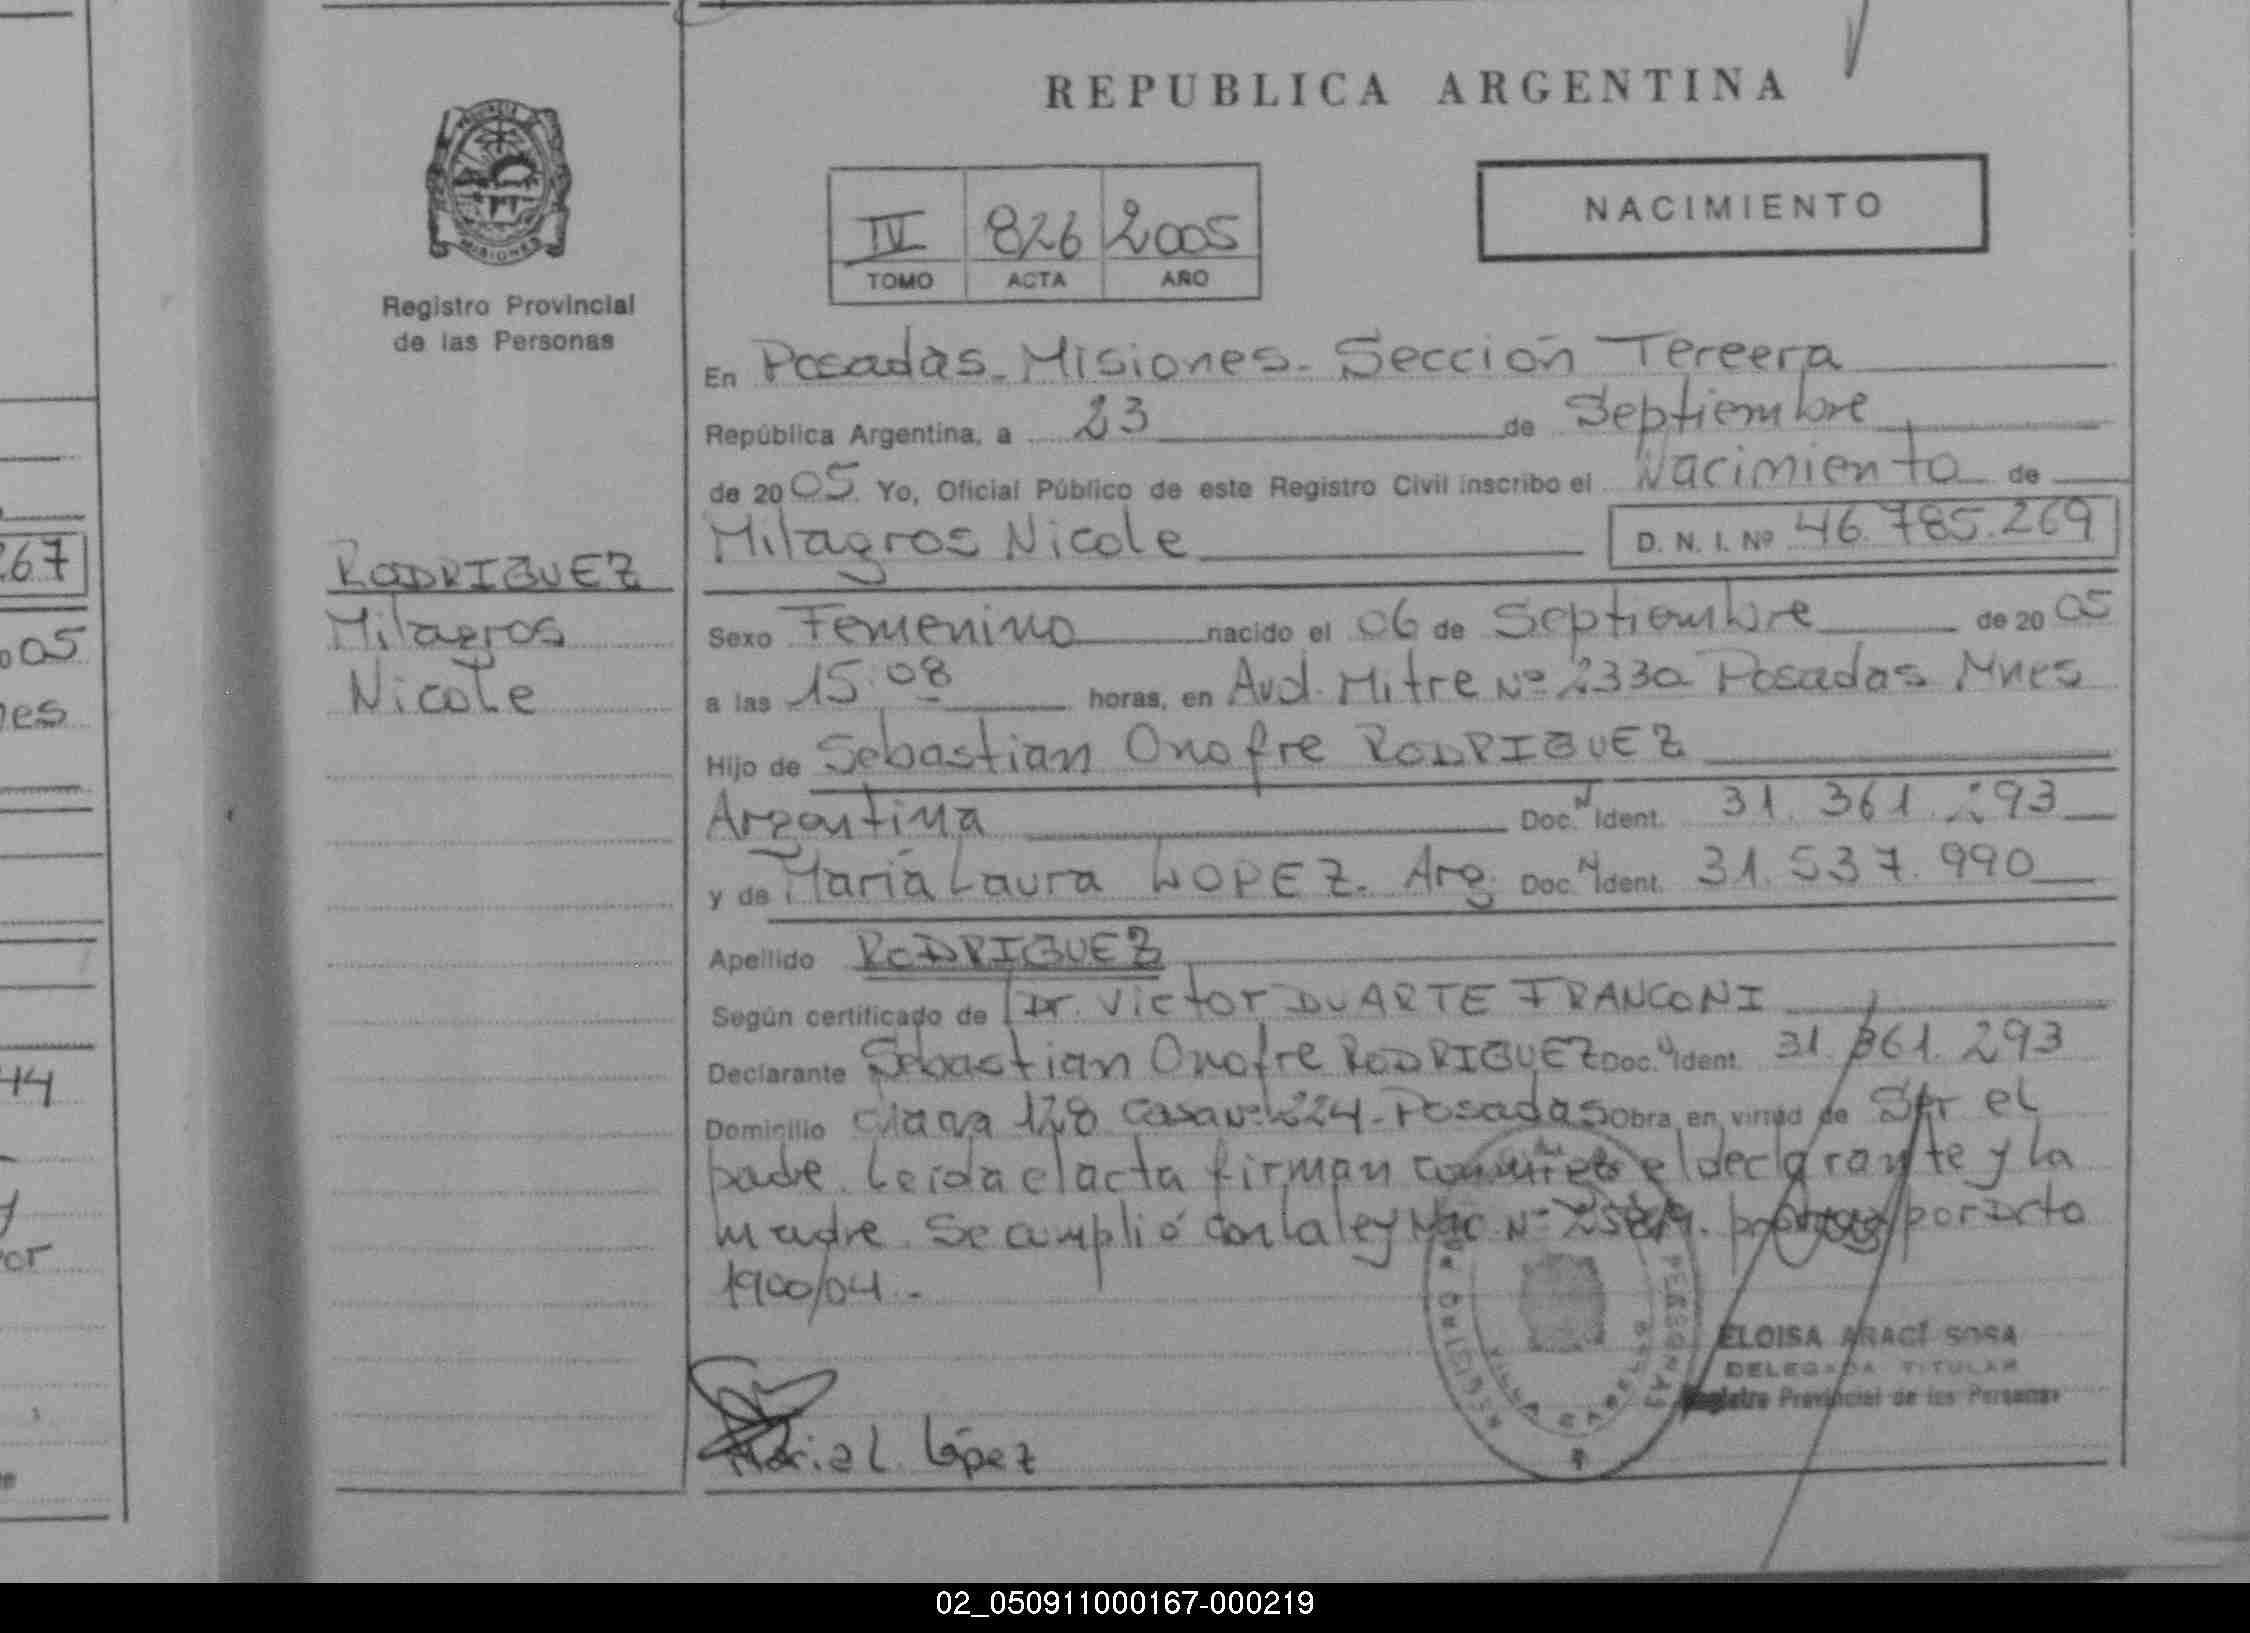 REPUBLICA ARGENTINA
PROVINCIA
MISIONES
Registro Provincial
de las Personas
IV 826 2005
TOMO ACTA AÑO
NACIMIENTO
En Posadas - Misiones - Sección Tercera
República Argentina, a 23 de Septiembre
de 2005 Yo, Oficial Público de este Registro Civil inscribo el Nacimiento de
Milagros Nicole D. N. I. Nº 46.785.269
RODRIGUEZ
Milagros
Nicole
Sexo Femenino nacido el 06 de Septiembre de 2005
a las 15:08 horas, en Avd. Mitre Nº 2330 Posadas Mnes
Hijo de Sebastian Onofre RODRIGUEZ
Argentina Doc. N Ident. 31.361.293
y de María Laura LOPEZ. Arg. Doc. N Ident. 31.537.990
Apellido RODRIGUEZ
Según certificado de Dr. Victor DUARTE FRANCONI
Declarante Sebastian Onofre RODRIGUEZ Doc. N Ident. 31.361.293
Domicilio Chacra 128 Casa Nº 224 - Posadas Obra en virtud de Ser el
padre. Leída el acta firman conmigo el declarante y la
madre. Se cumplió con la ley Nac. Nº por Dcto
1900/04.-
ELOISA ARACI SOSA
DELEGADA TITULAR
Registro Provincial de las Personas
Maria L. López
267
005
nes
44
y
or
02_050911000167-000219